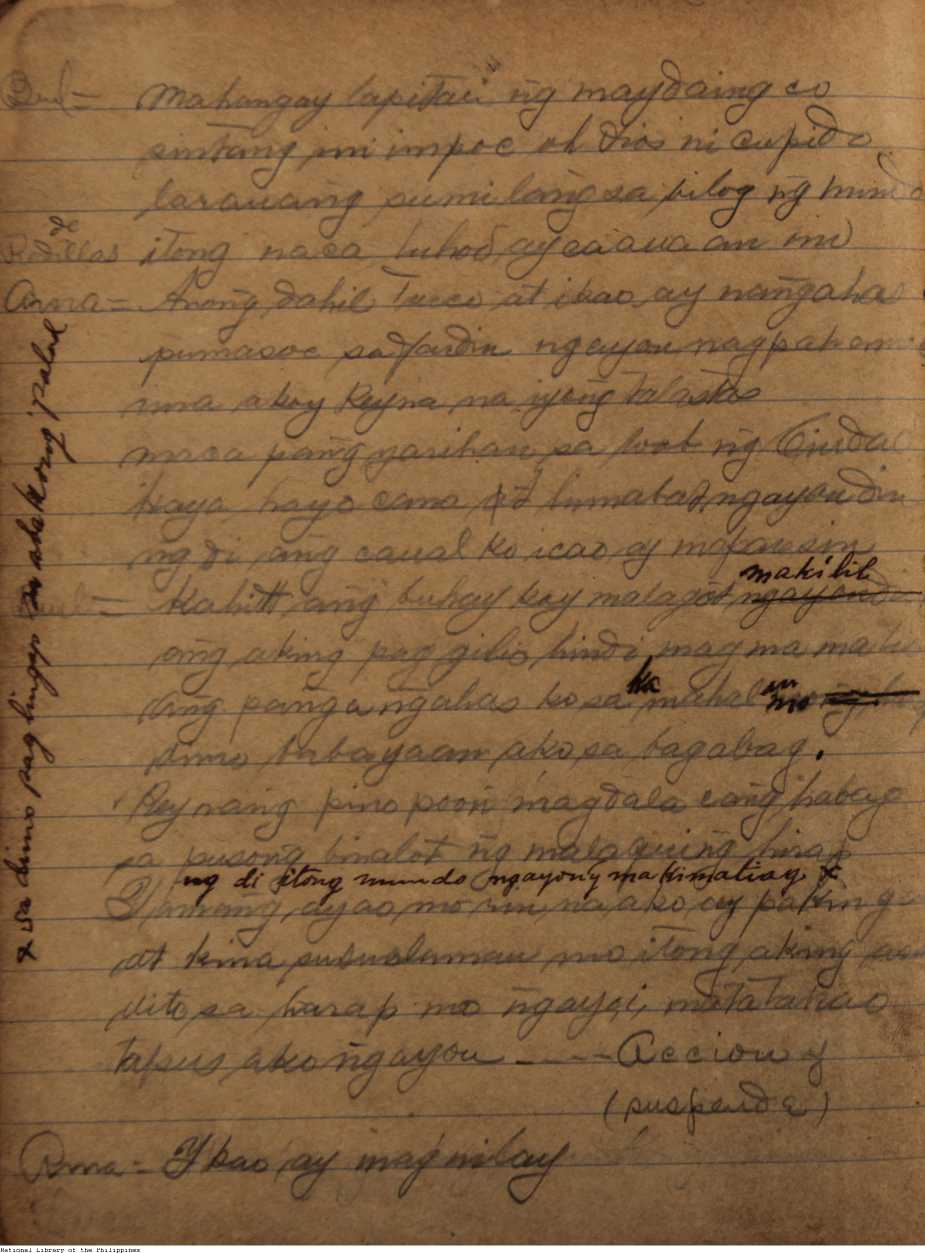 Mahangay lapitan ng maydaing co
sintang ini impoc oh Dios ni Cupido
larauang sumilang sa bilog ng mundo
de
Rodillas itong naca luhod ay caauaan mo
Anna = Anong dahil Turco at ikao ay nangahas
pumasoc sa Jardin ngayon nagpah
una akoy Reyna na iyong talastas
pang yarihan sa loob ng Ciudad
kaya hayo cana at lumabas ngayon din
ng di ang caual ko icao ay
makilib
= Kahit ang buhay koy malagot ngayon din
ang aking pag gilio hindi mag ma
ka an
ang panga ngahas ko sa mahal mo
dimo babayaan ako sa bagabag.
Reynang pino poon magdala cang habag
sa pusong binalot ng malaquing hirap
ng di itong mundo ngayon'y makimatiag x
Yamang ayao mo rin na ako ay
at kina susuklaman mo itong aking
dito sa harap mo ngayoi, matatahao
tapus ako ngayon ---- Accion y
(suspende)
Rna - Ykao ay mag nilay
x sa dimo pag lingap sa akong palad
National Library of the Philippines